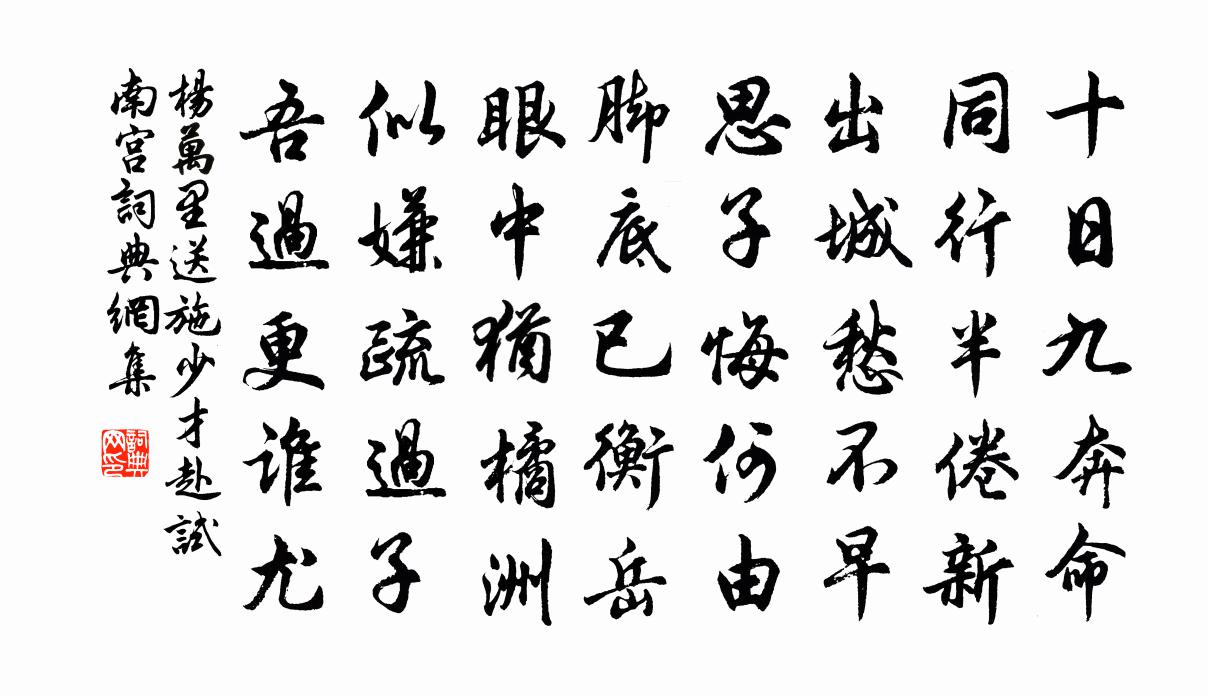 十日九奔命
同行半倦新
出城愁不早
思子悔何由
脚底已衡岳
眼中猶橘洲
似嫌疏過子
吾過更誰尤
楊萬里送施少才赴試
南宮詞典網集
詞典網印